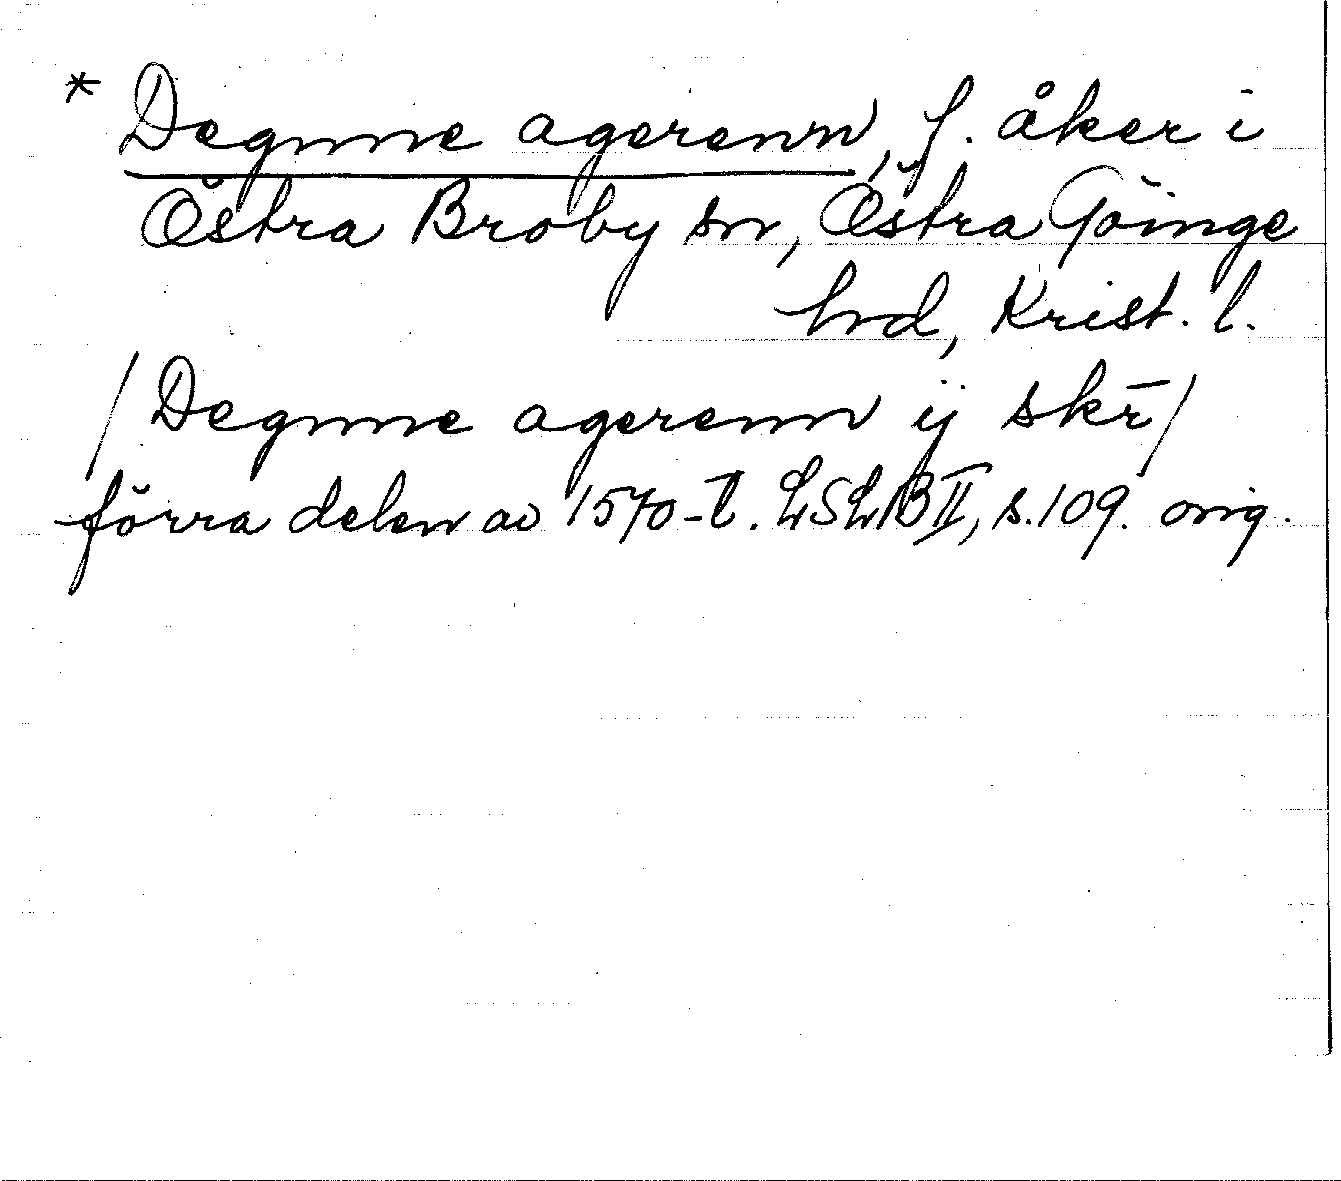 * Degnne agerenn, f. åker i
Östra Broby sn, Östra Göinge
hrd, Krist. l.
/Degnne agerenn ij skr̄/
förra delen av 1570-t. LSLB II, s. 109. orig.